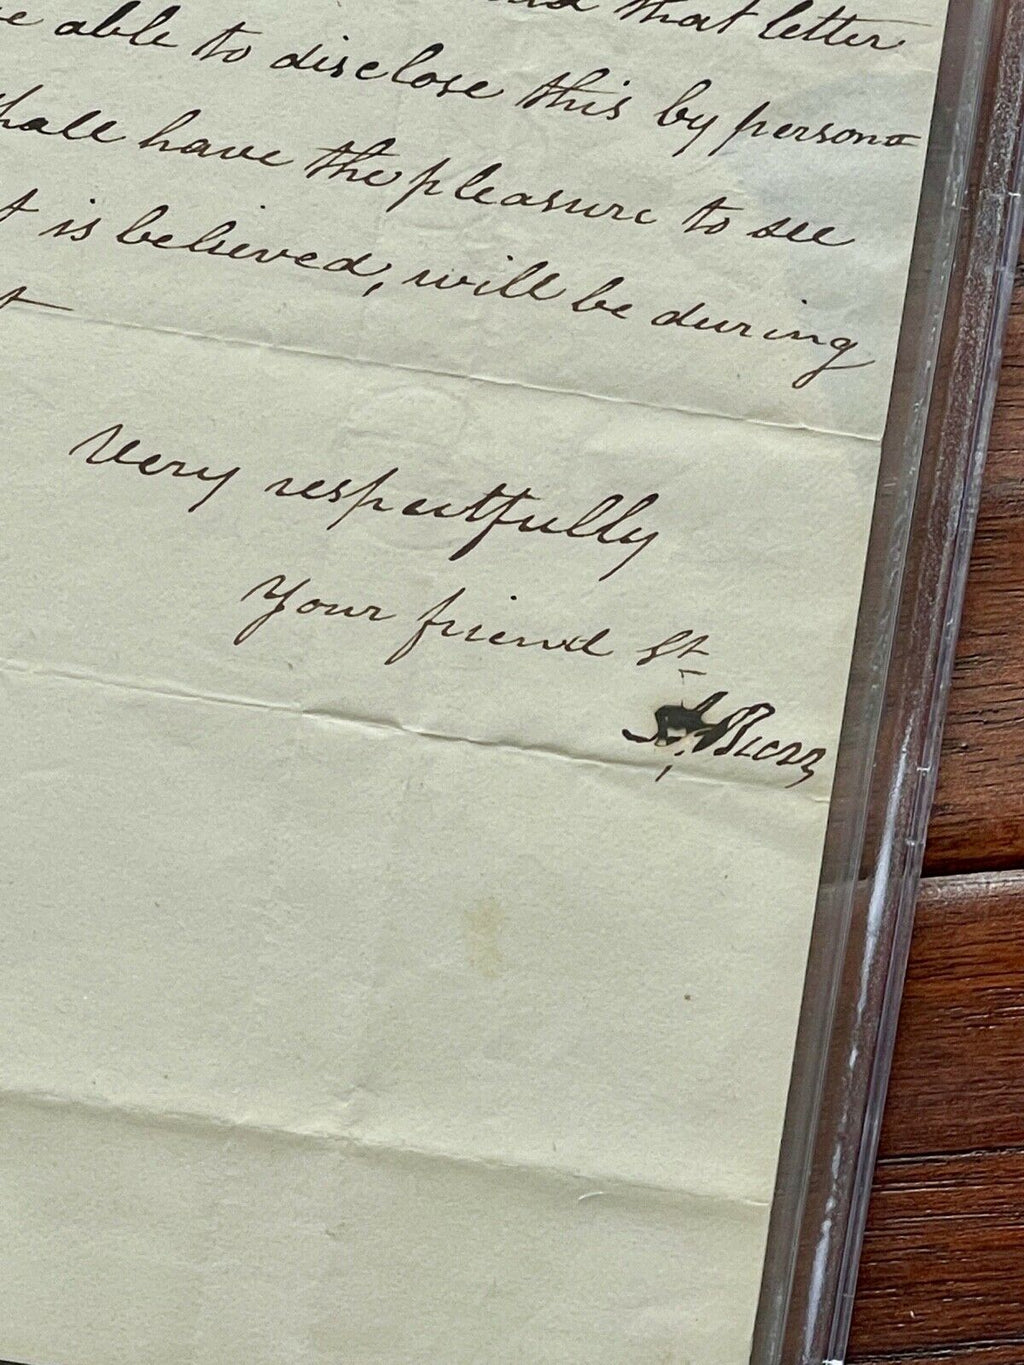 that letter
able to disclose this by person
hall have the pleasure to see
t is believed, will be during
t
Very respectfully
Your friend St
A. Burr